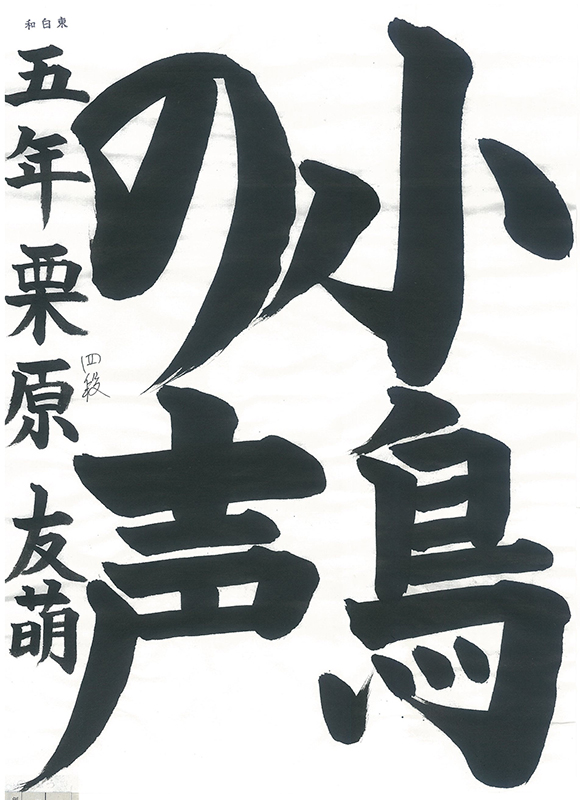 小鳥
の声
東白和
五年 栗原 友萌
四段